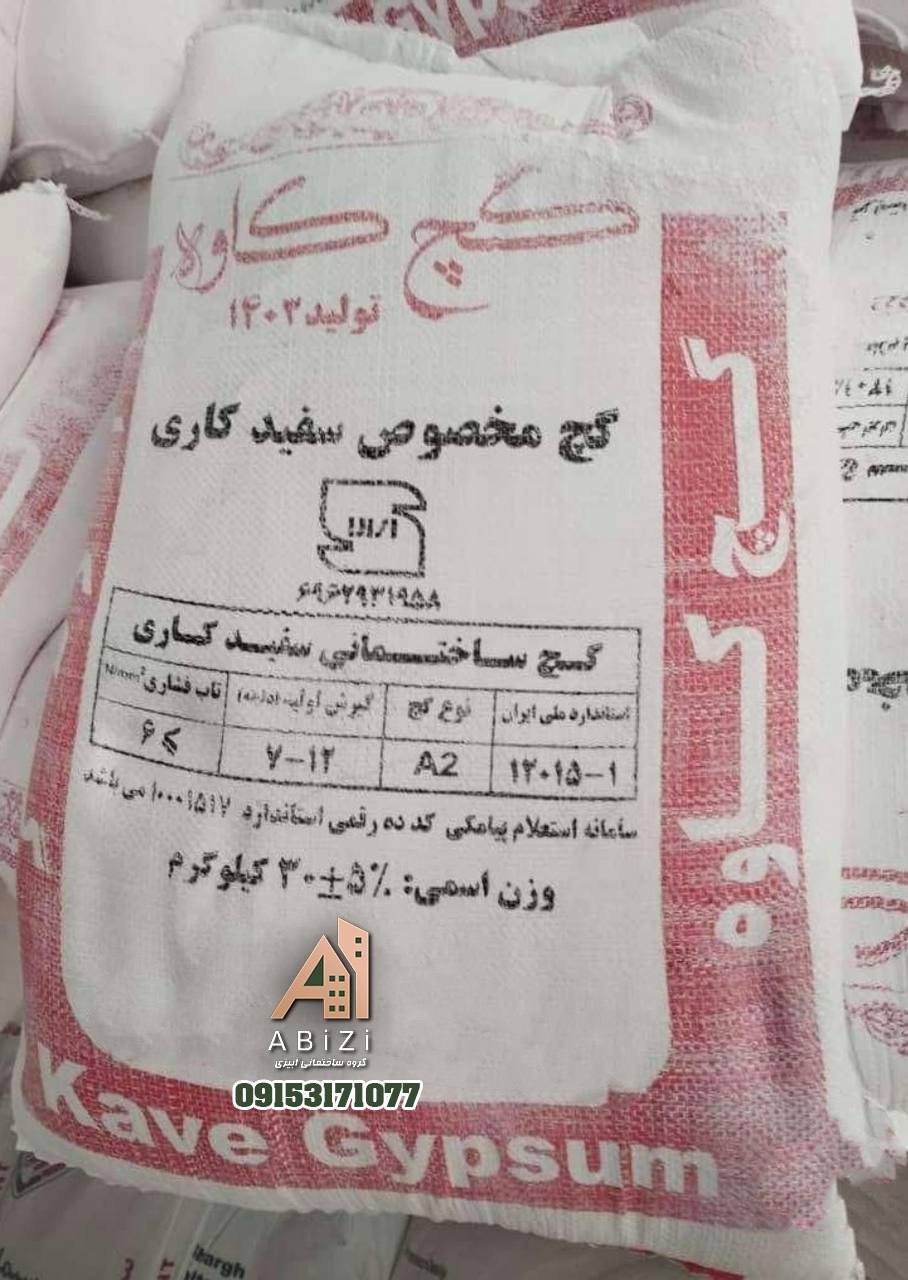 گچ کاوه
تولید ۱۴۰۳
گچ مخصوص سفید کاری
۶۹۶۷۹۳۱۹۵۸
گچ ساختمانی سفید کاری
استاندارد ملی ایران نوع گچ گیرش اولیه (دقیقه) تاب فشاری N/mm²
۱۲۰۱۵-۱ A2 ۷-۱۲ ⩾۶
سامانه استعلام پیامکی کد ده رقمی استاندارد ۱۰۰۰۱۵۱۷ می باشد
وزن اسمی: ۳۰±۵% کیلوگرم
گچ کاوه
ABiZi
گروه ساختمانی ابیزی
09153171077
Kave Gypsum